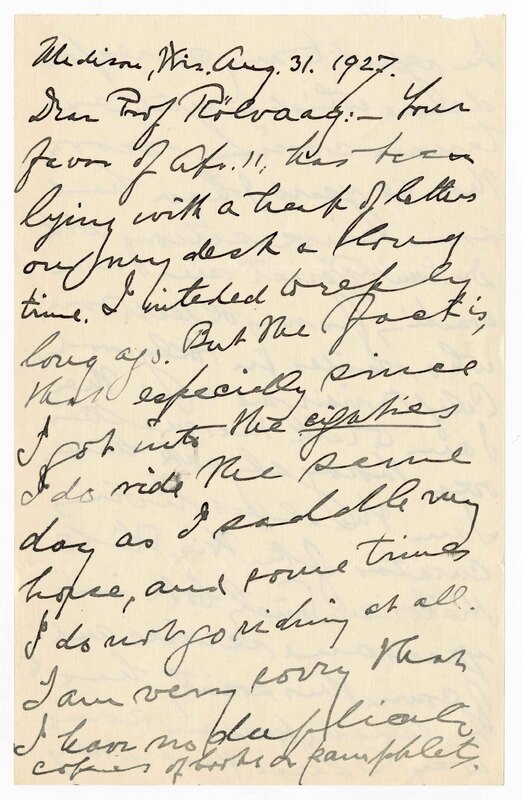 Madison, Wis. Aug. 31. 1927.
Dear Prof Rölvaag:— Your
favor of Apr. 11, has been
lying with a heap of letters
on my desk a long
time. I inteded to reply
long ago. But the fact is,
that especially since
I got into the eighties
I do ride the same
day as I saddle my
horse, and some times
I do not go riding at all.
I am very sorry that
I have no duplicate
copies of books or pamphlets.